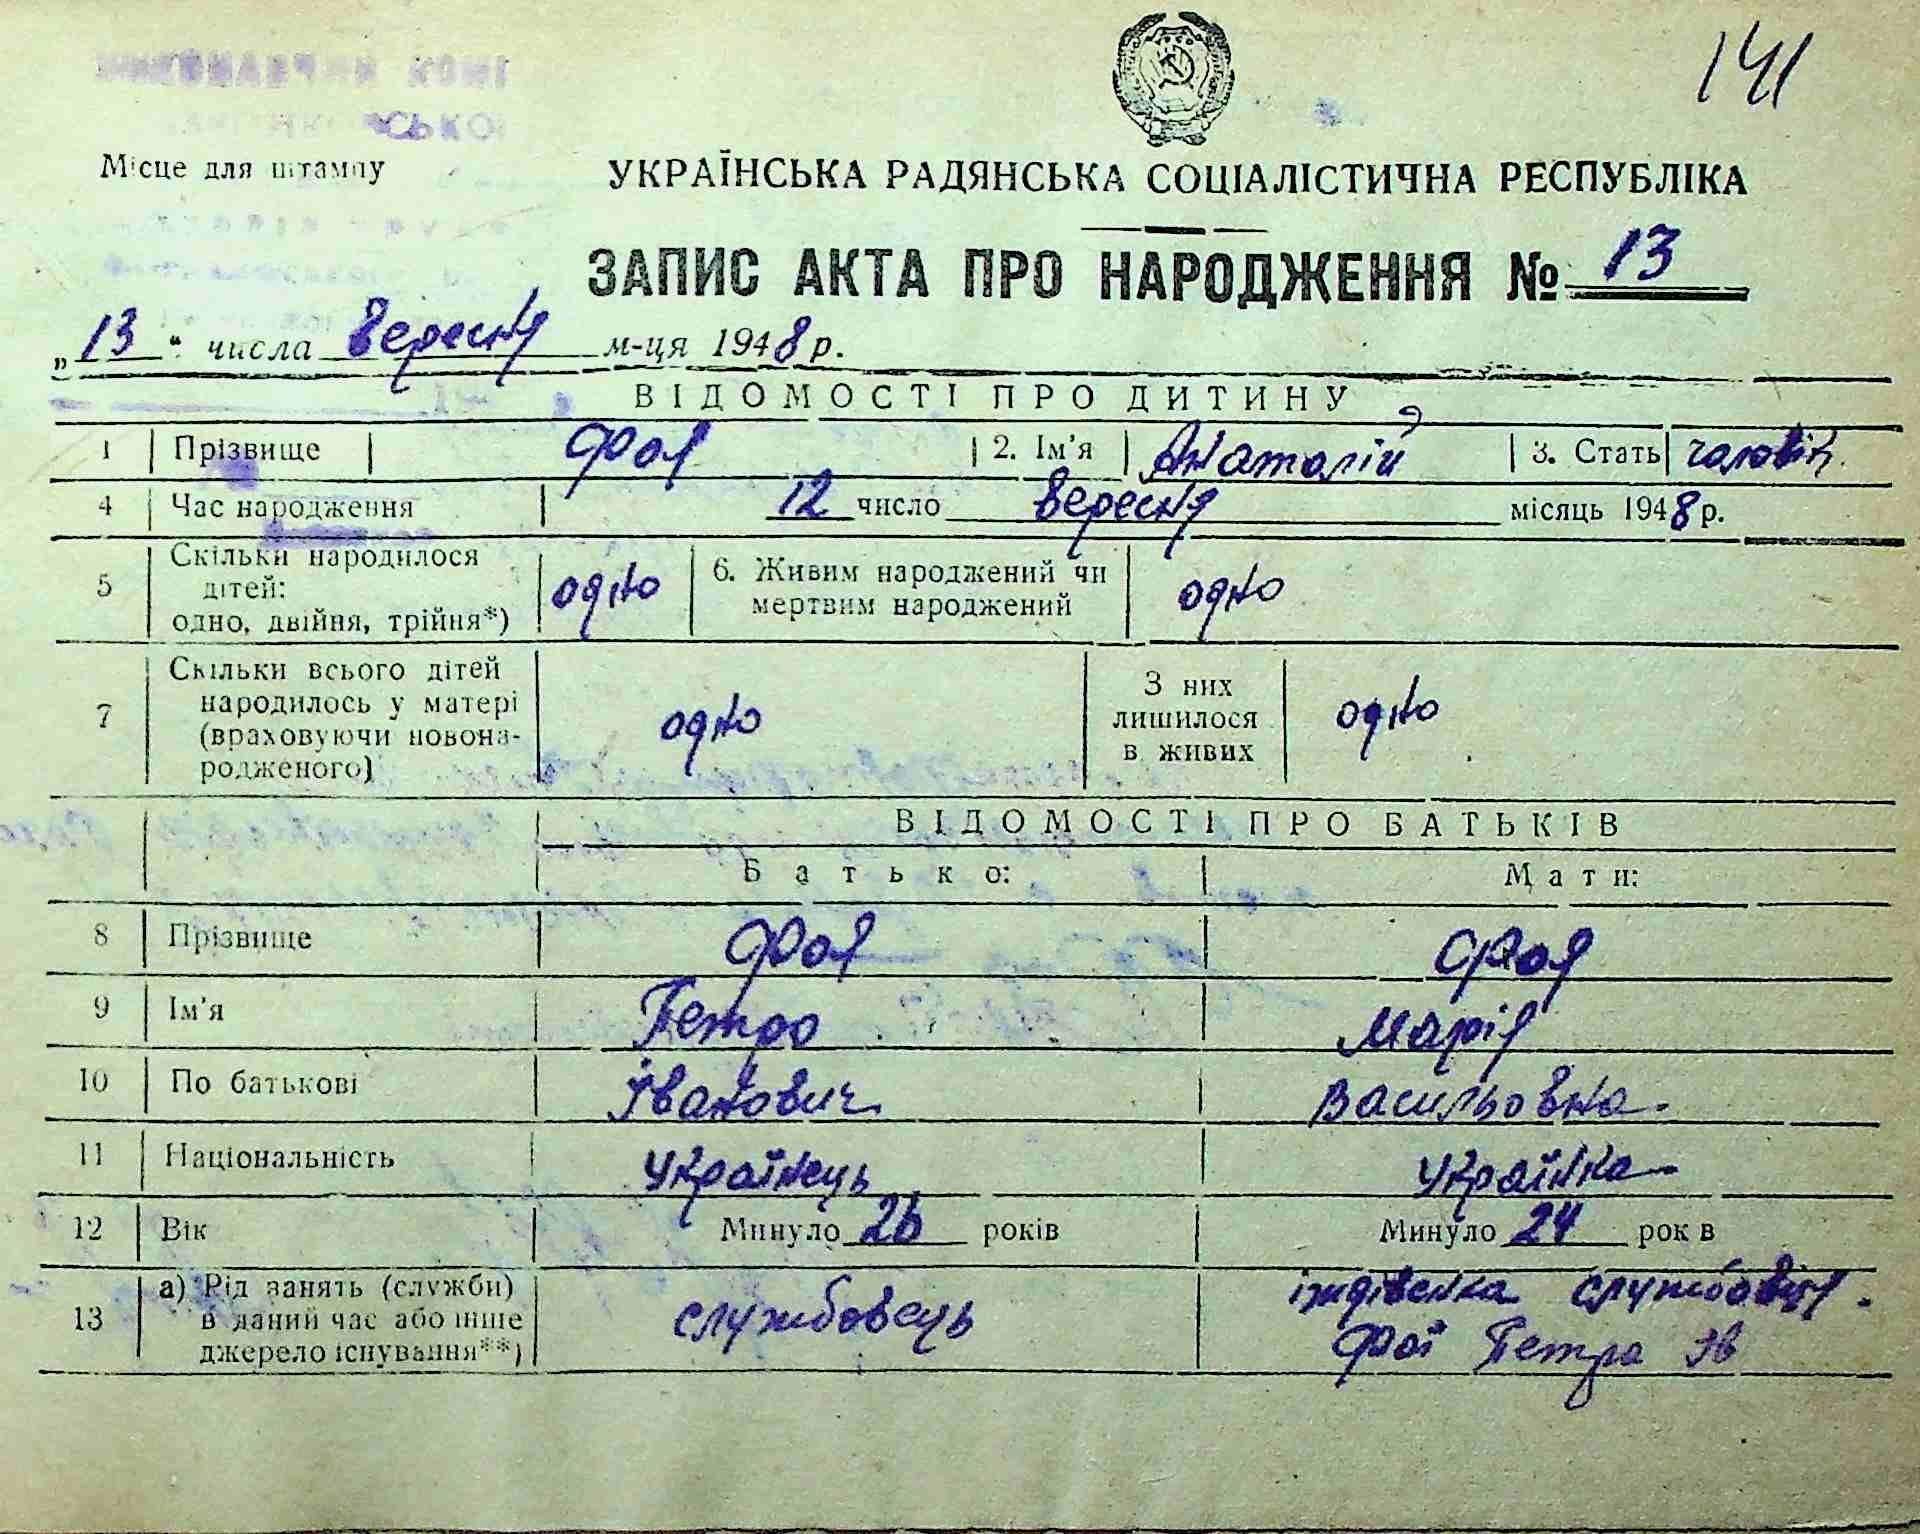 141
Місце для штампу
УКРАЇНСЬКА РАДЯНСЬКА СОЦІАЛІСТИЧНА РЕСПУБЛІКА
ЗАПИС АКТА ПРО НАРОДЖЕННЯ № 13
„13“ числа вересня м-ця 1948 р.
ВІДОМОСТІ ПРО ДИТИНУ
1 Прізвище Фоя 2. Ім'я Анатолій 3. Стать чоловіч.
4 Час народження 12 число вересня місяць 1948 р.
5 Скільки народилося дітей: одно, двійня, трійня*) одно 6. Живим народжений чи мертвим народжений одно
7 Скільки всього дітей народилось у матері (враховуючи новонародженого) одно З них лишилося в живих одно
ВІДОМОСТІ ПРО БАТЬКІВ
Батько: Мати:
8 Прізвище Фоя Фоя
9 Ім'я Петро Марія
10 По батькові Іванович Васильовна
11 Національність Українець Українка
12 Вік Минуло 26 років Минуло 24 рок в
13 а) Рід занять (служби) в даний час або інше джерело існування**) службовець іждівенка службовця.
Фої Петра Ів